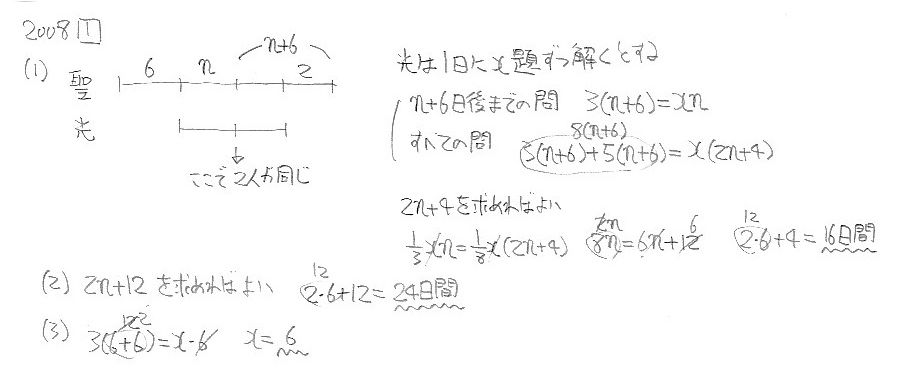 2008 1
(1) 聖 6 n n+6 2
光
ここで2人が同じ
光は1日にx題ずつ解くとする
n+6日後までの問 3(n+6)=xn
8(n+6)
すべての問 3(n+6)+5(n+6)=x(2n+4)
2n+4を求めればよい
1/3 xn=1/8 x(2n+4) 8n=6n+12 2n 6 12 2·6+4=16日間
(2) 2n+12を求めればよい 12 2·6+12=24日間
(3) 3(6+6)=x·6 12 2 x=6